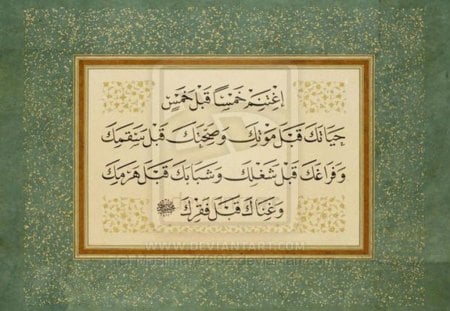 اِغْتَنِمْ خَمْسًا قَبْلَ خَمْسٍ
حَيَاتَكَ قَبْلَ مَوْتِكَ وَصِحَّتَكَ قَبْلَ سَقَمِكَ
وَفَرَاغَكَ قَبْلَ شُغْلِكَ وَشَبَابَكَ قَبْلَ هَرَمِكَ
وَغِنَاكَ قَبْلَ فَقْرِكَ
WWW.DEVIANTART.COM